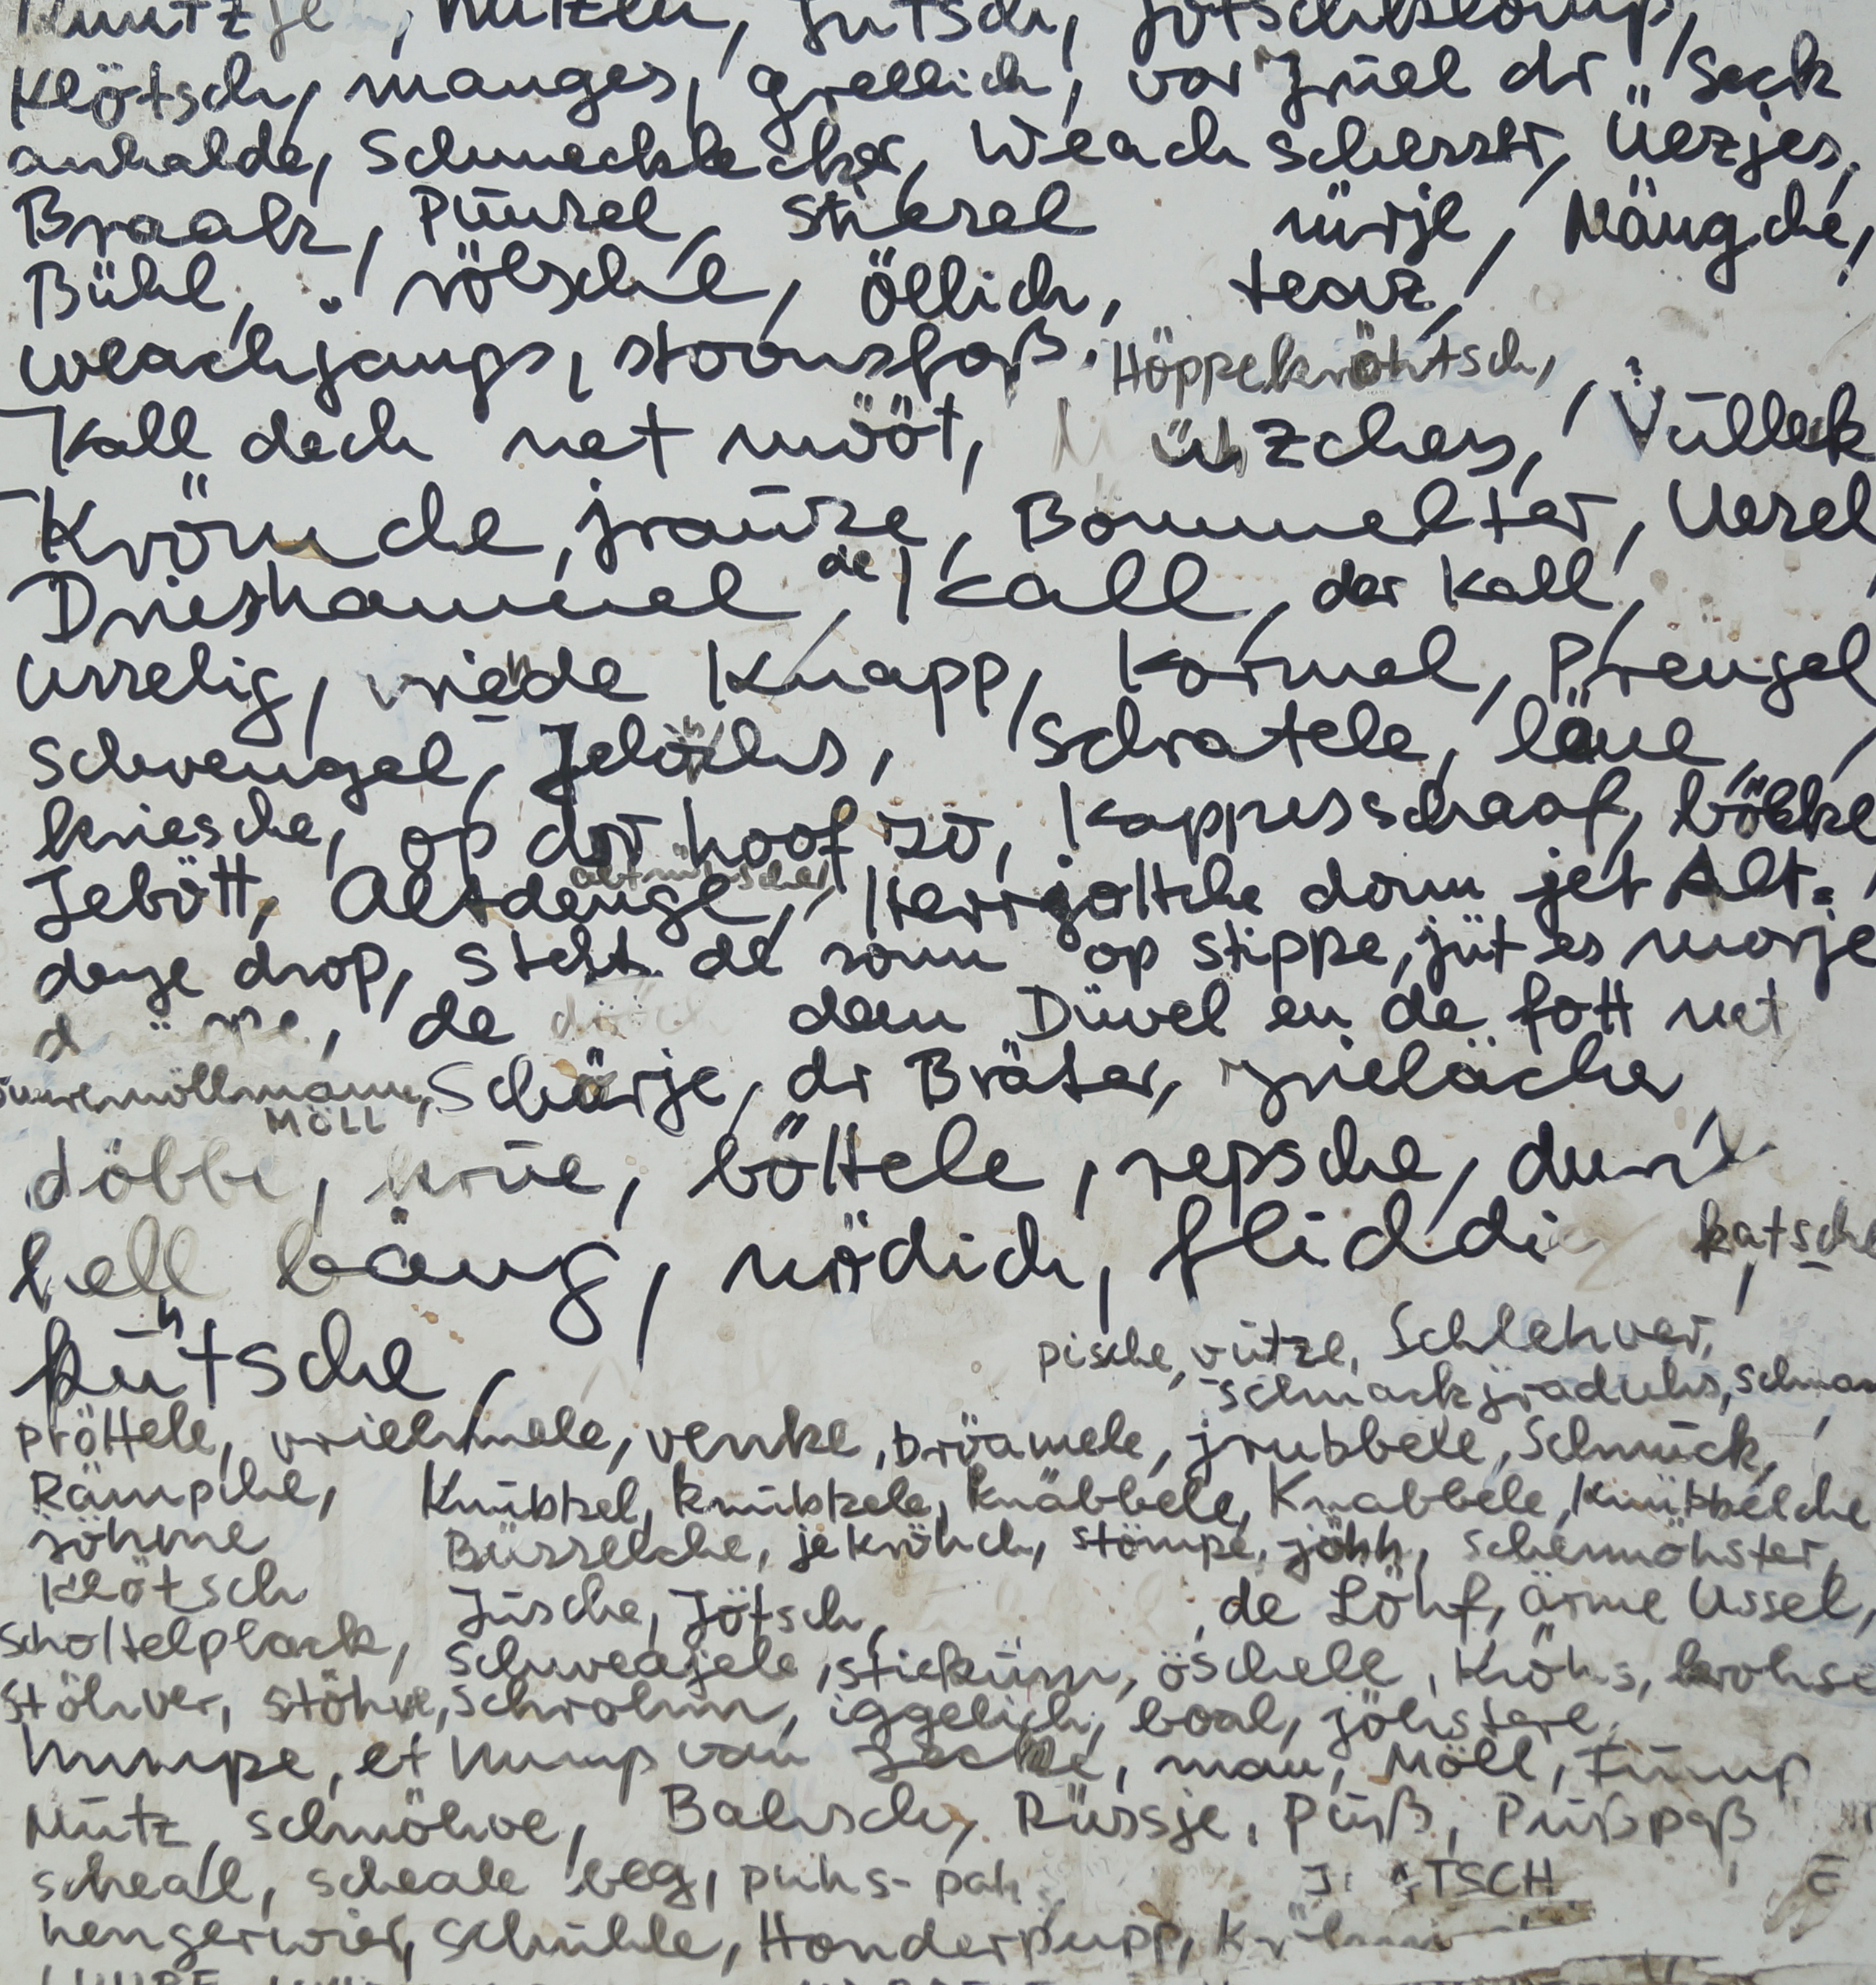 Klötsch, manges, grellich, vor jriel dr Seck
anhalde, Schmecklecker, Weach schesser, Üezjes,
Braatz, Püürel, Stiesel nürje, Mängche,
Bühl, rölsche, öllich, tearz,
weachjangs, stoonsfoß, Höppekröhtsch,
Kall dech net mööt, ützches, Vüllek
Krömche, jrauze, Bommelter, Uesel
Drieshammel, de Kall, der Kall,
usselig, vriehde Knapp, Kormel, Prengel
Schwengel, Jelöhs, Schratele, läue
kriesche, op dr hoof zo, Kappesschaaf, bölke
Jebött, Altdenge, Herrjottche donn jet Alt=
denge drop, steht de sonn op stippe, jüt es morje
de dem Düvel en de fott net
Möll
Schärje, dr Bräter, grielächer
döbbe, krüe, böttele, repsche,
hell bäng, nödich, katsche
kühtsche,
pische, vütze, Schlehver,
schmackjraduhs,
pröttele, vriehmele, venke, bröamele, jrubbele, Schmück,
Rämpche, Knübbel, knübbele, knäbbele, Knabbele, Knübbelche
söhme Büsselche, jekröhch, stömpe, jöhh, schennöhster,
Klötsch Jüsche, Jötsch, de Löhf, ärme Ussel,
Schottelplack, schweajele, stieküm, öschele, Kröhs, krohse
stöhver, stöhve, schrohm, iggelich, boal, jöhstere,
humpe, et hump van Jecke, mau, Möll, Fümp
Mütz, schnöhve, Balisch, Rüssje, Püß, Püßpaß
scheal, scheale beg, puhs- pah
TSCH
hengerwier, schühle, Honderpupp,